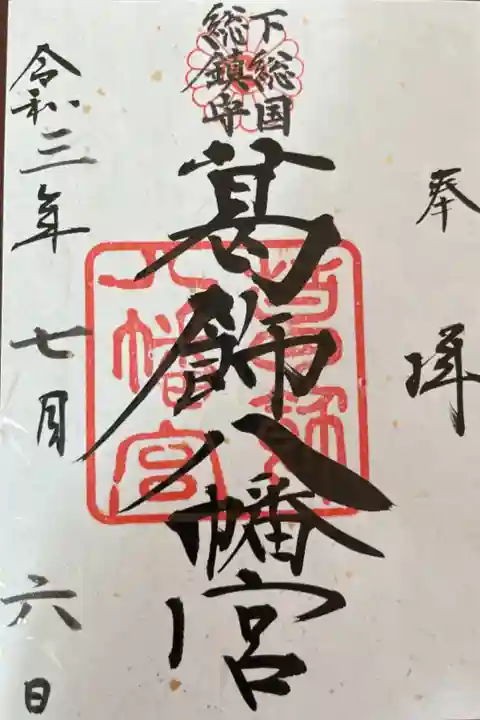 奉拝
下総国
総鎮守
葛飾八幡宮
葛飾
八幡宮
令和三年七月六日